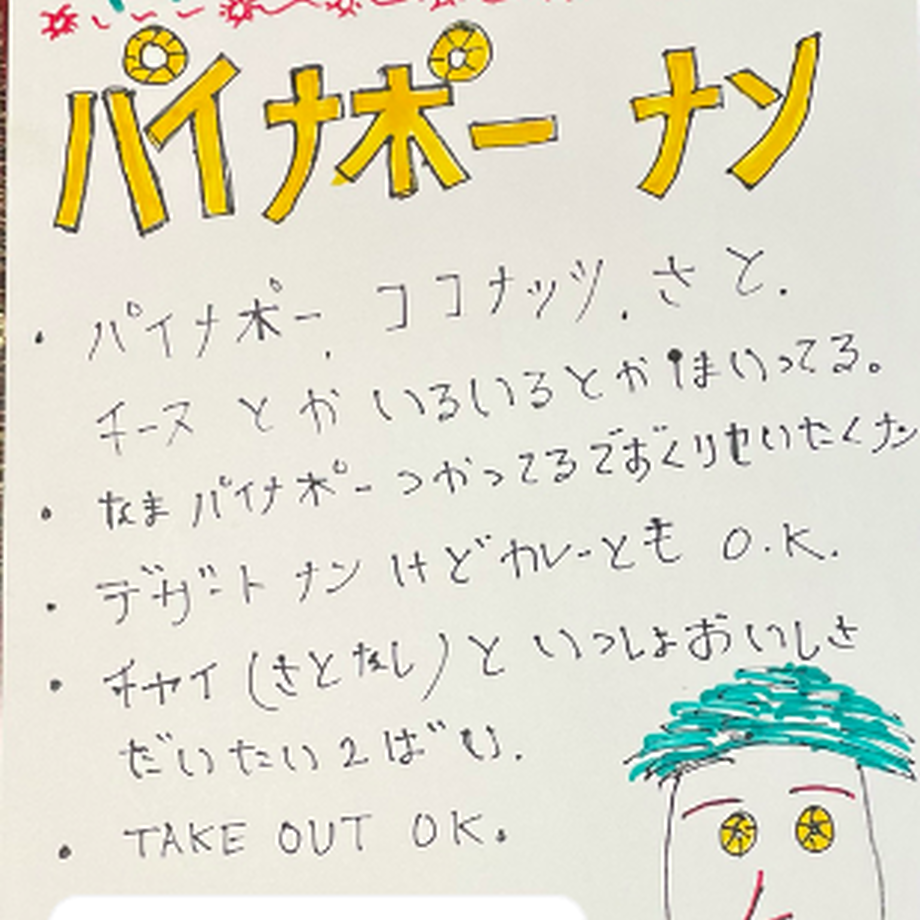 パイナポー ナン
・パイナポー、ココナッツ、さと、
チーズ とか いるいるとか はいってる。
・なま パイナポーつかってるでざくりせいたくナン
・デザート ナン けど カレーとも O.K.
・チャイ(さとなし)と いっしょおいしさ
だいたい2ばい.
・TAKE OUT OK.